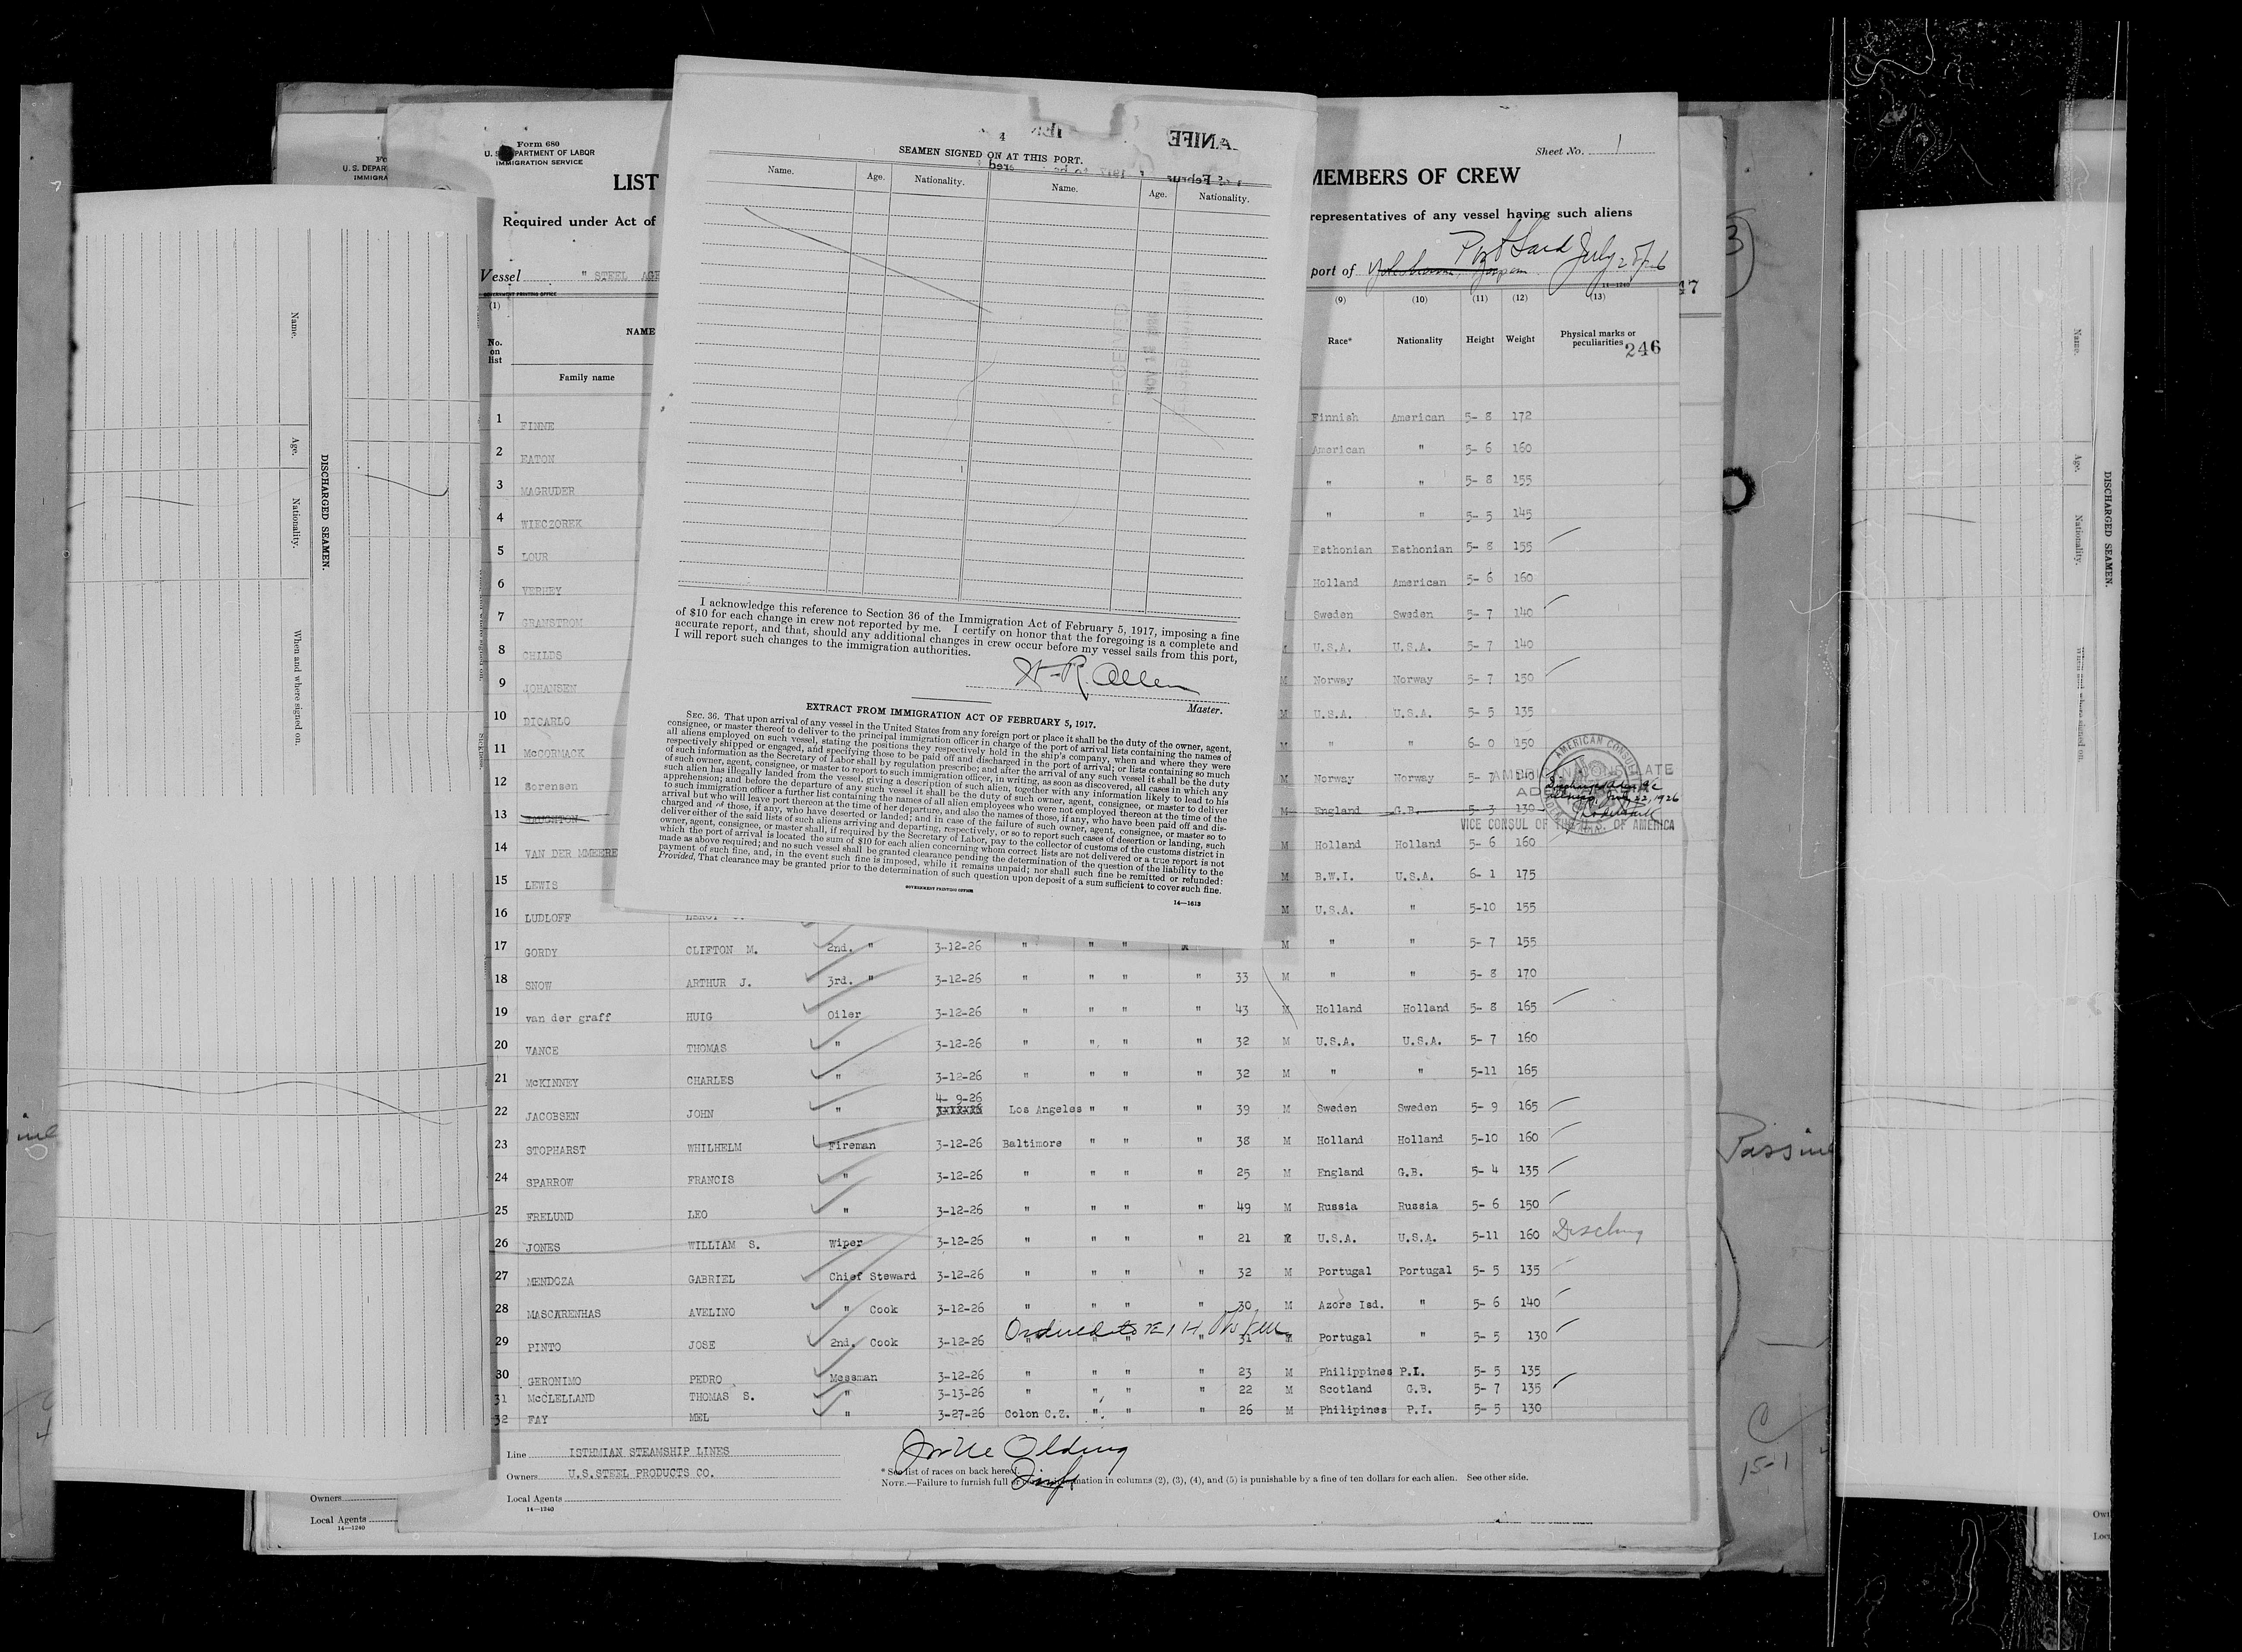 Form 680
U. S. DEPARTMENT OF LABOR
IMMIGRATION SERVICE
U. S. DEPAR
IMMIGRA
LIST
MEMBERS OF CREW
Sheet No. 1
Required under Act of
representatives of any vessel having such aliens
Vessel " STEEL AGE
port of Yokohama, Japan Port Said July 28/26
GOVERNMENT PRINTING OFFICE
14—1240
47
246
(1) (9) (10) (11) (12) (13)
No. on list NAME Family name Race* Nationality Height Weight Physical marks or peculiarities
1 FINNE Finnish American 5- 8 172
2 EATON American " 5- 6 160
3 MAGRUDER " " 5- 8 155
4 WIECZOREK " " 5- 5 145
5 LOUR Esthonian Esthonian 5- 8 155
6 VERHEY Holland American 5- 6 160
7 GRANSTROM Sweden Sweden 5- 7 140
8 CHILDS U.S.A. U.S.A. 5- 7 140
9 JOHANSEN M Norway Norway 5- 7 150
10 DICARLO M U.S.A. U.S.A. 5- 5 135
11 McCORMACK M " " 6- 0 150
12 Sorensen M Norway Norway 5- 7
13 M England G.B. 5- 3 130
14 VAN DER MMEERE M Holland Holland 5- 6 160
15 LEWIS M B.W.I. U.S.A. 6- 1 175
16 LUDLOFF M U.S.A. " 5-10 155
17 GORDY CLIFTON M. 2nd. " 3-12-26 " " " M M " " 5- 7 155
18 SNOW ARTHUR J. 3rd. " 3-12-26 " " " " 33 M " " 5- 8 170
19 van der graff HUIG Oiler 3-12-26 " " " " 43 M Holland Holland 5- 8 165
20 VANCE THOMAS " 3-12-26 " " " " 32 M U.S.A. U.S.A. 5- 7 160
21 McKINNEY CHARLES " 3-12-26 " " " " 32 M " " 5-11 165
4- 9-26
22 JACOBSEN JOHN " Los Angeles " " " 39 M Sweden Sweden 5- 9 165
23 STOPHARST WHILHELM Fireman 3-12-26 Baltimore " " " 38 M Holland Holland 5-10 160
24 SPARROW FRANCIS " 3-12-26 " " " " 25 M England G.B. 5- 4 135
25 FRELUND LEO " 3-12-26 " " " " 49 M Russia Russia 5- 6 150
26 JONES WILLIAM S. Wiper 3-12-26 " " " " 21 M U.S.A. U.S.A. 5-11 160
27 MENDOZA GABRIEL Chief Steward 3-12-26 " " " " 32 M Portugal Portugal 5- 5 135
28 MASCARENHAS AVELINO " Cook 3-12-26 " " " " 30 M Azore Isd. " 5- 6 140
29 PINTO JOSE 2nd. Cook 3-12-26 " " " " 31 M Portugal " 5- 5 130
30 GERONIMO PEDRO Messman 3-12-26 " " " " 23 M Philippines P.I. 5- 5 135
31 McCLELLAND THOMAS S. " 3-13-26 " " " " 22 M Scotland G.B. 5- 7 135
32 FAY MEL " 3-27-26 Colon C.Z. " " " 26 M Philipines P.I. 5- 5 130
AMERICAN CONSULATE
VICE CONSUL OF THE U.S. OF AMERICA
Line ISTHMIAN STEAMSHIP LINES
Owners U.S.STEEL PRODUCTS CO.
Local Agents
14—1240
* See list of races on back hereof.
NOTE.—Failure to furnish full or mation in columns (2), (3), (4), and (5) is punishable by a fine of ten dollars for each alien. See other side.
Owners
Local Agents
14—1240
SEAMEN SIGNED ON AT THIS PORT.
Name. Age. Nationality. Name. Age. Nationality.
RECEIVED
I acknowledge this reference to Section 36 of the Immigration Act of February 5, 1917, imposing a fine
of $10 for each change in crew not reported by me. I certify on honor that the foregoing is a complete and
accurate report, and that, should any additional changes in crew occur before my vessel sails from this port,
I will report such changes to the immigration authorities.
H. R. Allen
Master.
EXTRACT FROM IMMIGRATION ACT OF FEBRUARY 5, 1917.
SEC. 36. That upon arrival of any vessel in the United States from any foreign port or place it shall be the duty of the owner, agent,
consignee, or master thereof to deliver to the principal immigration officer in charge of the port of arrival lists containing the names of
all aliens employed on such vessel, stating the positions they respectively hold in the ship's company, when and where they were
respectively shipped or engaged, and specifying those to be paid off and discharged in the port of arrival; or lists containing so much
of such information as the Secretary of Labor shall by regulation prescribe; and after the arrival of any such vessel it shall be the duty
of such owner, agent, consignee, or master to report to such immigration officer, in writing, as soon as discovered, all cases in which any
such alien has illegally landed from the vessel, giving a description of such alien, together with any information likely to lead to his
apprehension; and before the departure of any such vessel it shall be the duty of such owner, agent, consignee, or master to deliver
to such immigration officer a further list containing the names of all alien employees who were not employed thereon at the time of the
arrival but who will leave port thereon at the time of her departure, and also the names of those, if any, who have been paid off and dis-
charged and of those, if any, who have deserted or landed; and in case of the failure of such owner, agent, consignee, or master so to
deliver either of the said lists of such aliens arriving and departing, respectively, or so to report such cases of desertion or landing, such
owner, agent, consignee, or master shall, if required by the Secretary of Labor, pay to the collector of customs of the customs district in
which the port of arrival is located the sum of $10 for each alien concerning whom correct lists are not delivered or a true report is not
made as above required; and no such vessel shall be granted clearance pending the determination of the question of the liability to the
payment of such fine, and, in the event such fine is imposed, while it remains unpaid; nor shall such fine be remitted or refunded:
Provided, That clearance may be granted prior to the determination of such question upon deposit of a sum sufficient to cover such fine.
GOVERNMENT PRINTING OFFICE
14—1613
DISCHARGED SEAMEN.
Name. Age. Nationality. When and where signed on.
DISCHARGED SEAMEN.
Name. Age. Nationality. When and where signed on.